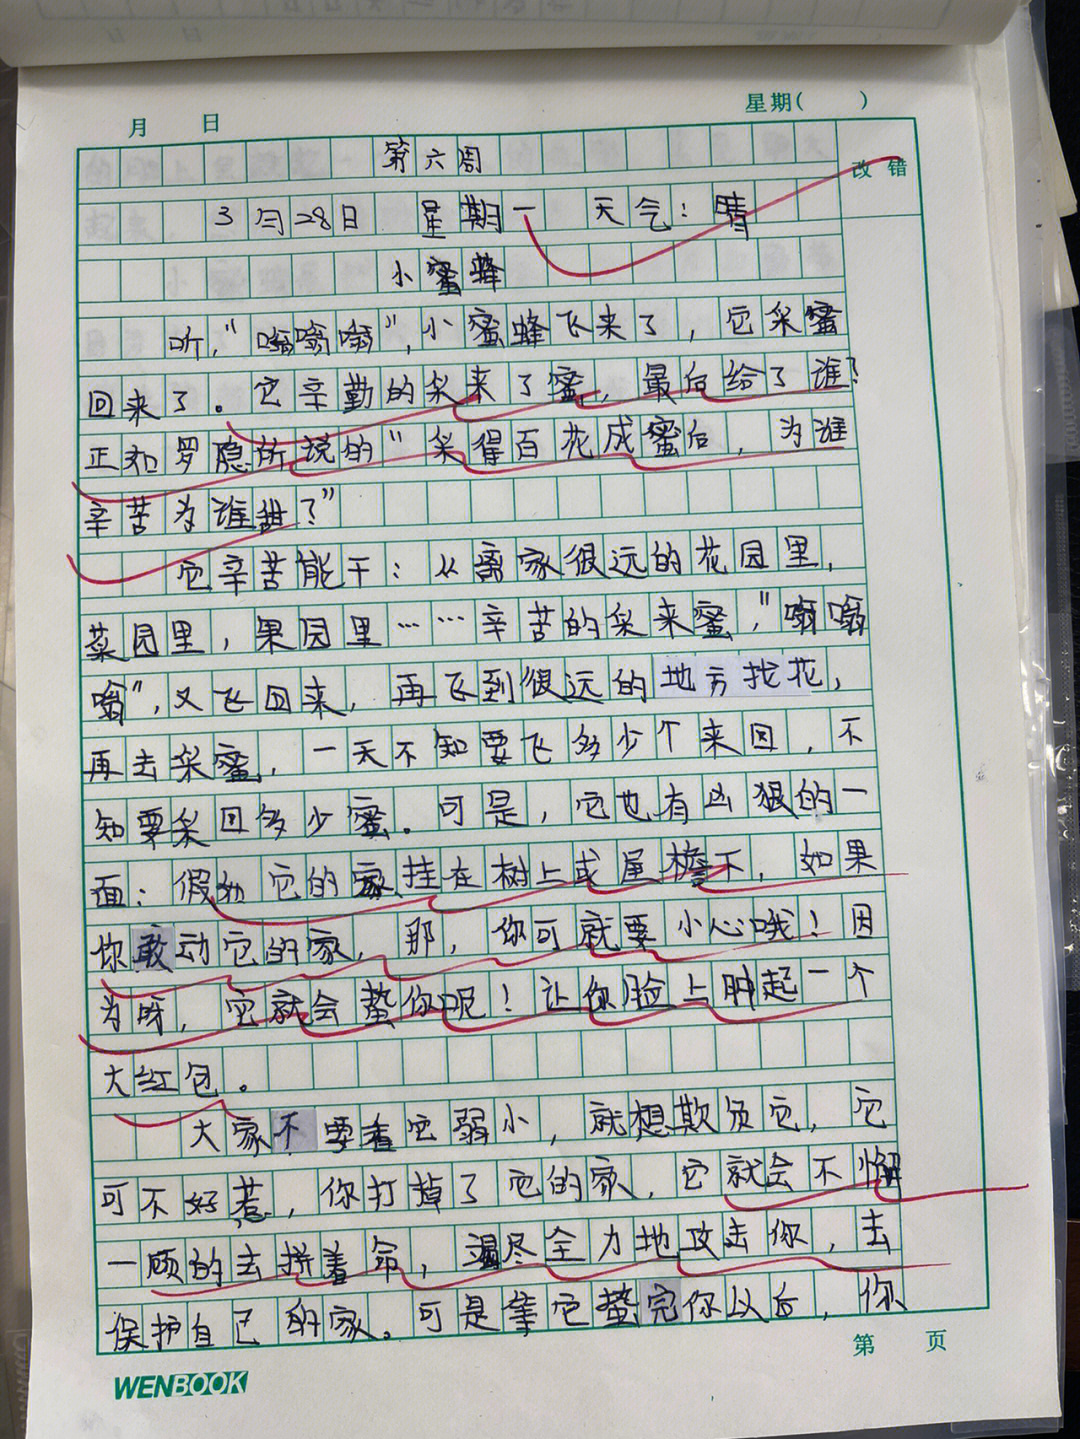 月 日 星期( )
改错
第六周
3月28日 星期一 天气：晴
小蜜蜂
听，“嗡嗡嗡”，小蜜蜂飞来了，它采蜜
回来了。它辛勤的采来了蜜，最后给了谁？
正和罗隐所说的“采得百花成蜜后，为谁
辛苦为谁甜？”
它辛苦能干：从离家很远的花园里，
菜园里，果园里……辛苦的采来蜜，“嗡嗡
嗡”，又飞回来，再飞到很远的地方找花，
再去采蜜，一天不知要飞多少个来回，不
知要采回多少蜜。可是，它也有凶狠的一
面：假如它的家挂在树上或屋檐下，如果
你敢动它的家，那，你可就要小心哦！因
为呀，它就会蛰你呢！让你脸上肿起一个
大红包。
大家不要看它弱小，就想欺负它，它
可不好惹，你打掉了它的家，它就会不懈
一顾的去拼着命，竭尽全力地攻击你，去
保护自己的家。可是等它蛰完你以后，你
第 页
WENBOOK